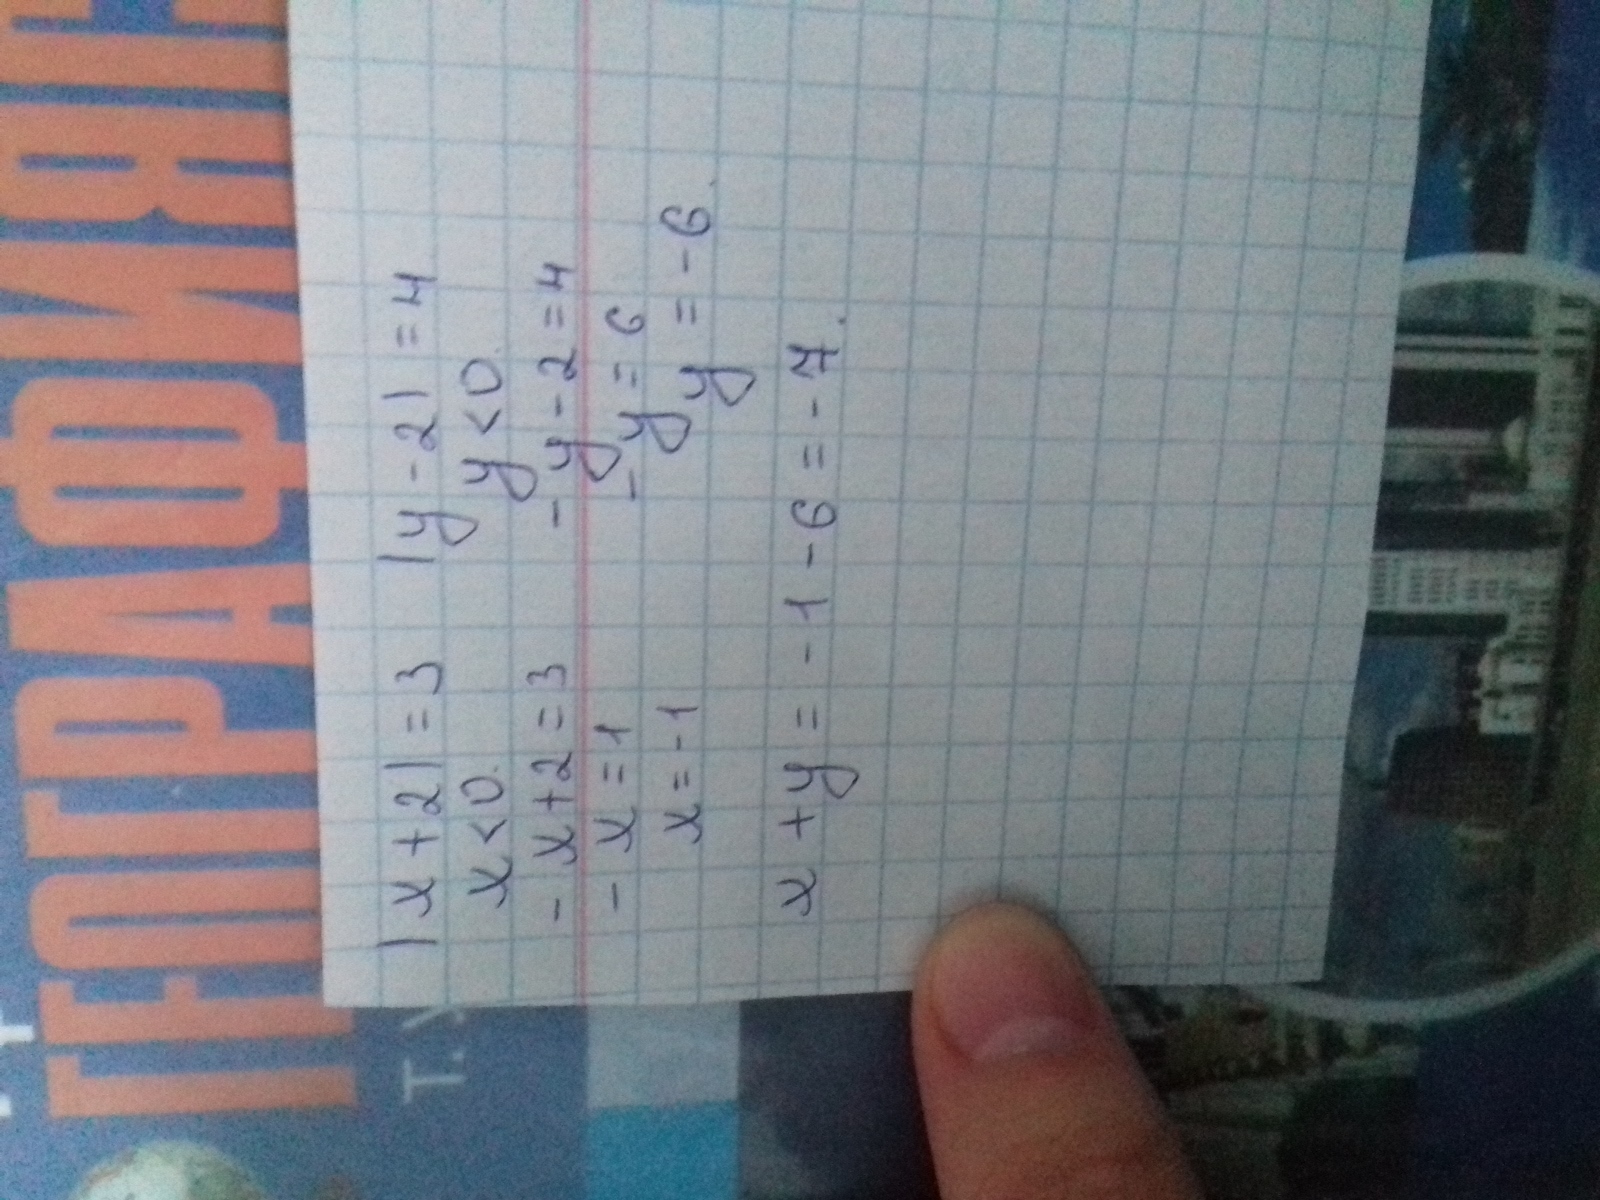 ГЕОГРАФИЯ
Т.
|x+2|=3 |y-2|=4
x<0. y<0.
-x+2=3 -y-2=4
-x=1 -y=6
x=-1 y=-6.
x+y=-1-6=-7.